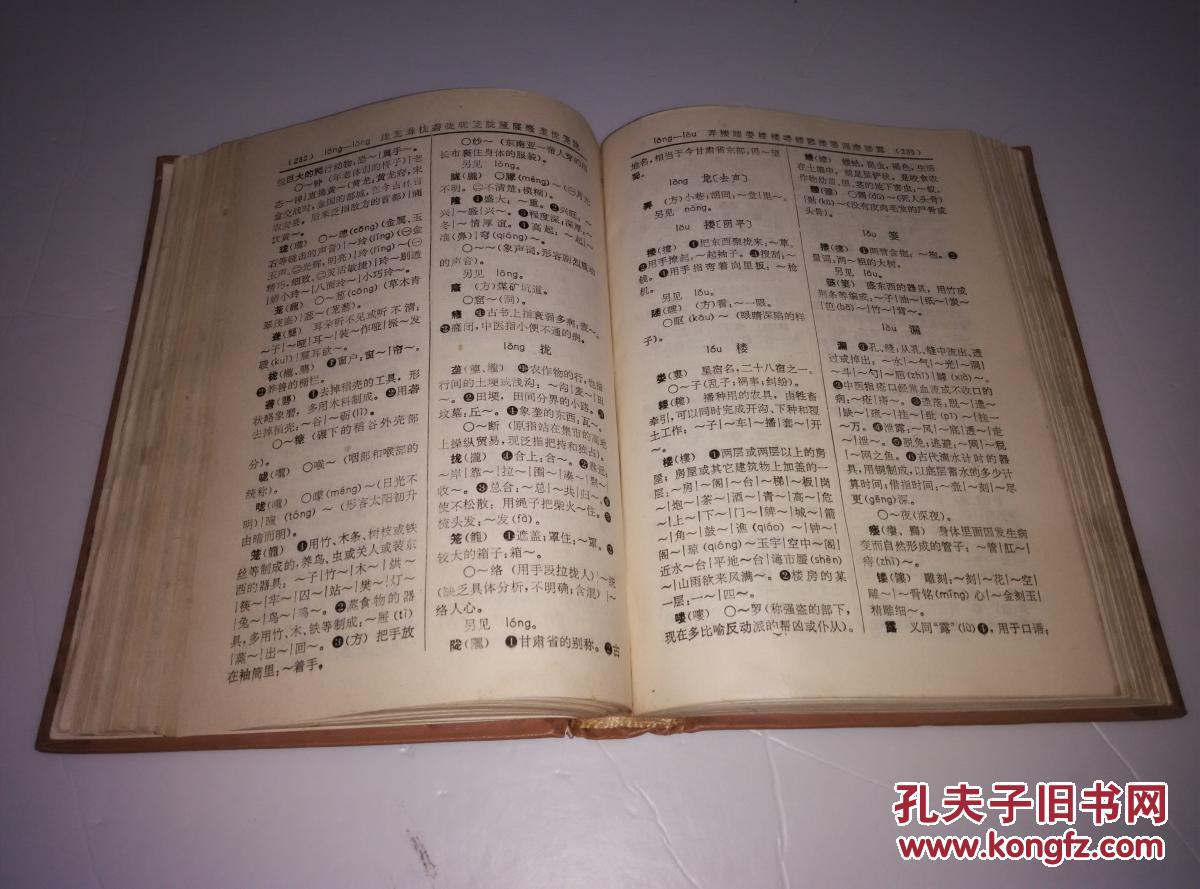 (232) lóng—lǒng
包巨大的爬行动物;恐~|属手~。
〇~钟(年老体弱的样子)|老
态~钟|直捣黄~(黄龙:黄龙府,宋
金交战时,金国的都城,在今吉林省
农安县。后来泛指敌方的首都)|痛
饮黄~。
石等碰击的声音)|~玲(líng)(㊀金
玉声。㊁光辉,明亮)|玲~(㊀
精巧,细致。㊁灵活敏捷)|玲~剔透
|娇小玲~|八面玲~|小巧玲~。
翠茂盛)|葱~(茏葱)。
聋(聾) 耳朵听不见或听不清;
~子|~哑|耳~|装~作哑|振~发
聩(kuì)|震耳欲~。
栊(櫳、龒) ❶窗户;窗~|帘~。
❷养兽的栅栏。
砻(礱) ❶去掉稻壳的工具,形
状略象磨,多用木料制成。❷用砻
去掉稻壳;~谷|~砺(lì)。
〇~糠(碾下的稻谷外壳部
分)。
咙(嚨) 〇喉~(咽部和喉部的
统称)。
昽(曨) 〇曚(méng)~(日光不
明)|曈(tóng)~(形容太阳初升
由暗而明)。
笼(籠) ❶用竹、木条、树枝或铁
丝等制成的,养鸟、虫或关人或装东
西的器具;~子|竹~|木~|烘~
|筷~|牢~|囚~|站~|樊~|灯~
|兔~|鸟~|鸡~。❷蒸食物的器
具,多用竹、木、铁等制成;~屉(tì)
|蒸~|出~|回~。❸(方)把手放
在袖筒里;~着手。
〇纱~(东南亚一带人穿的用
长布裹住身体的服装)。
另见lǒng。
胧(朧) 〇朦(méng)~(㊀月光
不明。㊁不清楚;模糊)。
隆 ❶盛大;~重。❷兴旺;~
兴|~盛|兴~。❸程度深;深厚;~
冬|~情厚谊。❹高起;~起|~
准(鼻)|穹(qióng)~。
〇~~(象声词,形容剧烈震动
的声音)。
另见lōng。
窿 (方)煤矿坑道。
〇窟~(洞)。
癃 ❶古书上指衰弱多病;疲~。
❷癃闭,中医指小便不通的病。
lǒng 拢
垄(壠、壟) ❶农作物的行,也指
行间的土埂或浅沟;~沟|麦~|田
~。❷田埂,田间分界的小路。❸
坟墓;丘~。❹象垄的东西;瓦~。
〇~断(原指站在集市的高地
上操纵贸易;现泛指把持和独占)。
拢(攏) ❶合上;合~。❷靠近;
~岸|靠~|拉~|围~|凑~|聚~|
收~。❸总合;~总|~共|归~。❹
使不松散;用绳子把柴火~住。❺
梳头发;~发(fà)。
笼(籠) ❶遮盖;罩住;~罩。❷
较大的箱子;箱~。
〇~络(用手段拉拢人)|~统
(缺乏具体分析,不明确;含混)|~
络人心。
另见lóng。
陇(隴) ❶甘肃省的别称。❷古
lǒng—lòu (233)
地名,相当于今甘肃省东部;得~望
蜀。
lòng 龙〔去声〕
弄 (方)小巷;胡同;~堂|里~。
另见nòng。
lōu 搂〔阴平〕
搂(摟) ❶把东西聚拢来;~草。
❷用手撩起;~起袖子。❸搜刮;~
钱。❹用手指弯着向里扳;~枪
机。
另见lǒu。
䁖(瞜) (方)看;~一眼。
〇眍(kōu)~(眼睛深陷的样
子)。
lóu 楼
娄(婁) 星宿名,二十八宿之一。
〇~子(乱子;祸事;纠纷)。
耧(耬) 播种用的农具,由牲畜
牵引,可以同时完成开沟、下种和覆
土工作;~子|~车|~播|套~|开
~。
楼(樓) ❶两层或两层以上的房
屋;房屋或其它建筑物上加盖的一
层;~房|~阁|~台|~梯|~板|岗
~|炮~|茶~|酒~|青~|高~|危
~|上~|下~|门~|牌~|城~|箭
~|角~|鼓~|谯(qiáo)~|钟~|
阁~|琼(qióng)~玉宇|空中~阁|
近水~台|平地~台|海市蜃(shèn)
~|山雨欲来风满~。❷楼房的某
一层;一~|四~。
喽(嘍) 〇~罗(称强盗的部下,
现在多比喻反动派的帮凶或仆从)。
蝼(螻) 蝼蛄,昆虫,褐色,生活
在土壤中,前足呈铲状。是咬食农
作物幼苗、根、茎的地下害虫;~蚁。
髅(髏) 〇髑(dú)~(死人头骨)
|骷(kū)~(没有皮肉毛发的尸骨或
头骨)。
lǒu 篓
搂(摟) ❶两臂合抱;~抱。❷
量词;两~粗的大树。
另见lōu。
篓(簍) 盛东西的器具,用竹或
荆条等编成;~子|油~|纸~|炭~
|笆(bā)~|竹~|背~。
lòu 漏
漏 ❶孔、缝;从孔、缝中流出、透
过或掉出;~水|~气|~光|~洞|
~斗|~勺|~卮(zhī)|~罅(xià)~。
❷中医指疮口经常血流或不收口的
病;~疮|痔~。❸遗落;脱~|遗~
|缺~|疏~|挂~|纰(pī)~|挂一
~万。❹泄露;~风|~底|透~|走
~|泄~。❺脱免;逃避;~网|~税
|~网之鱼。❻古代滴水计时的器
具,用铜制成,以底层蓄水的多少计
算时间;借指时间;~壶|~刻|~尽
更(gēng)深。
〇~夜(深夜)。
瘘(瘻、㾞) 身体里面因发生病
变而自然形成的管子;~管|肛~|
痔(zhì)~。
镂(鏤) 雕刻;~刻|~花|~空|
雕~|~骨铭(míng)心|~金刻玉|
精雕细~。
露 义同“露”(lù)❹,用于口语;
孔夫子旧书网
www.kongfz.com